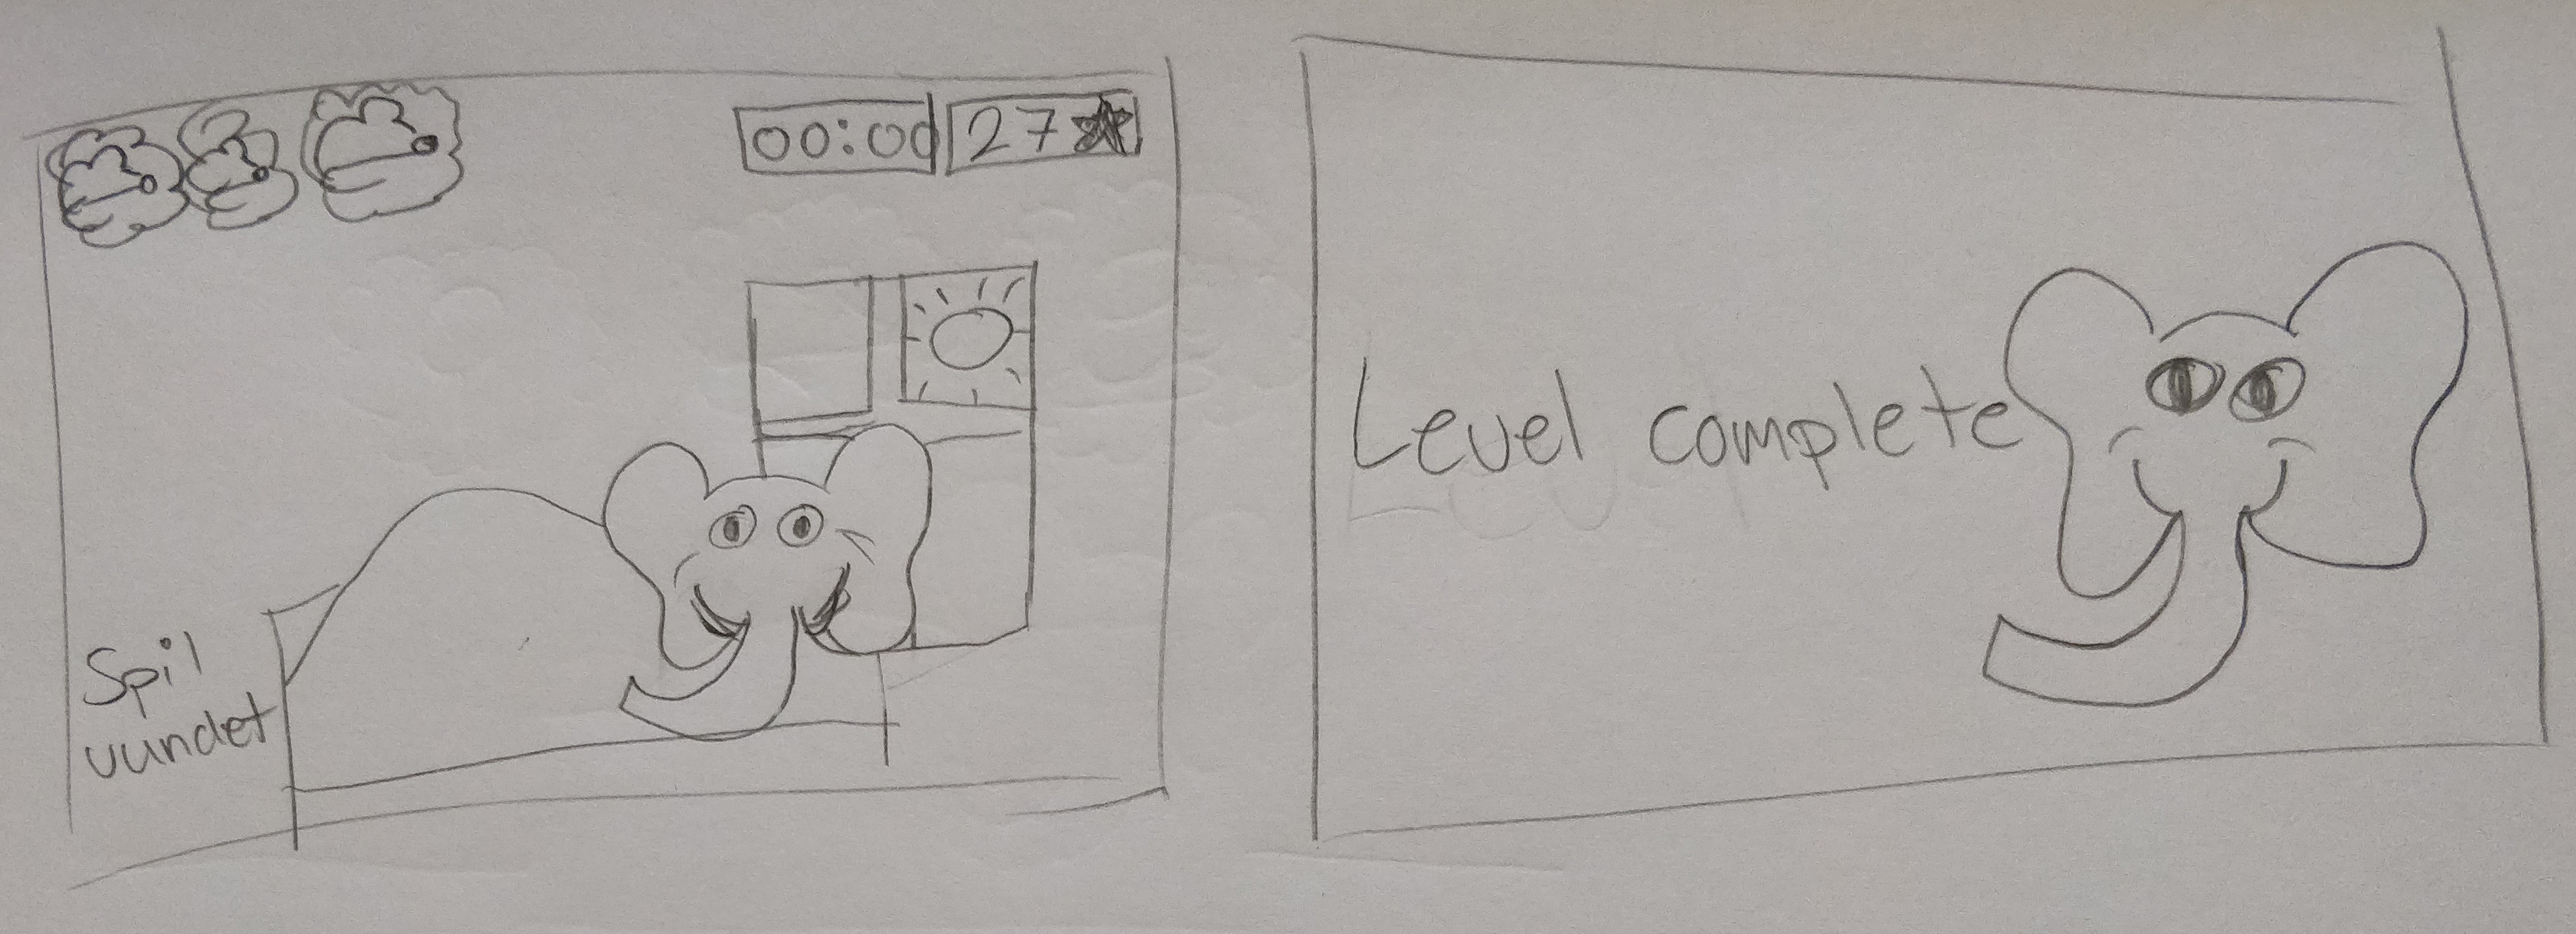 00:00
27
Spil
vundet
Level complete